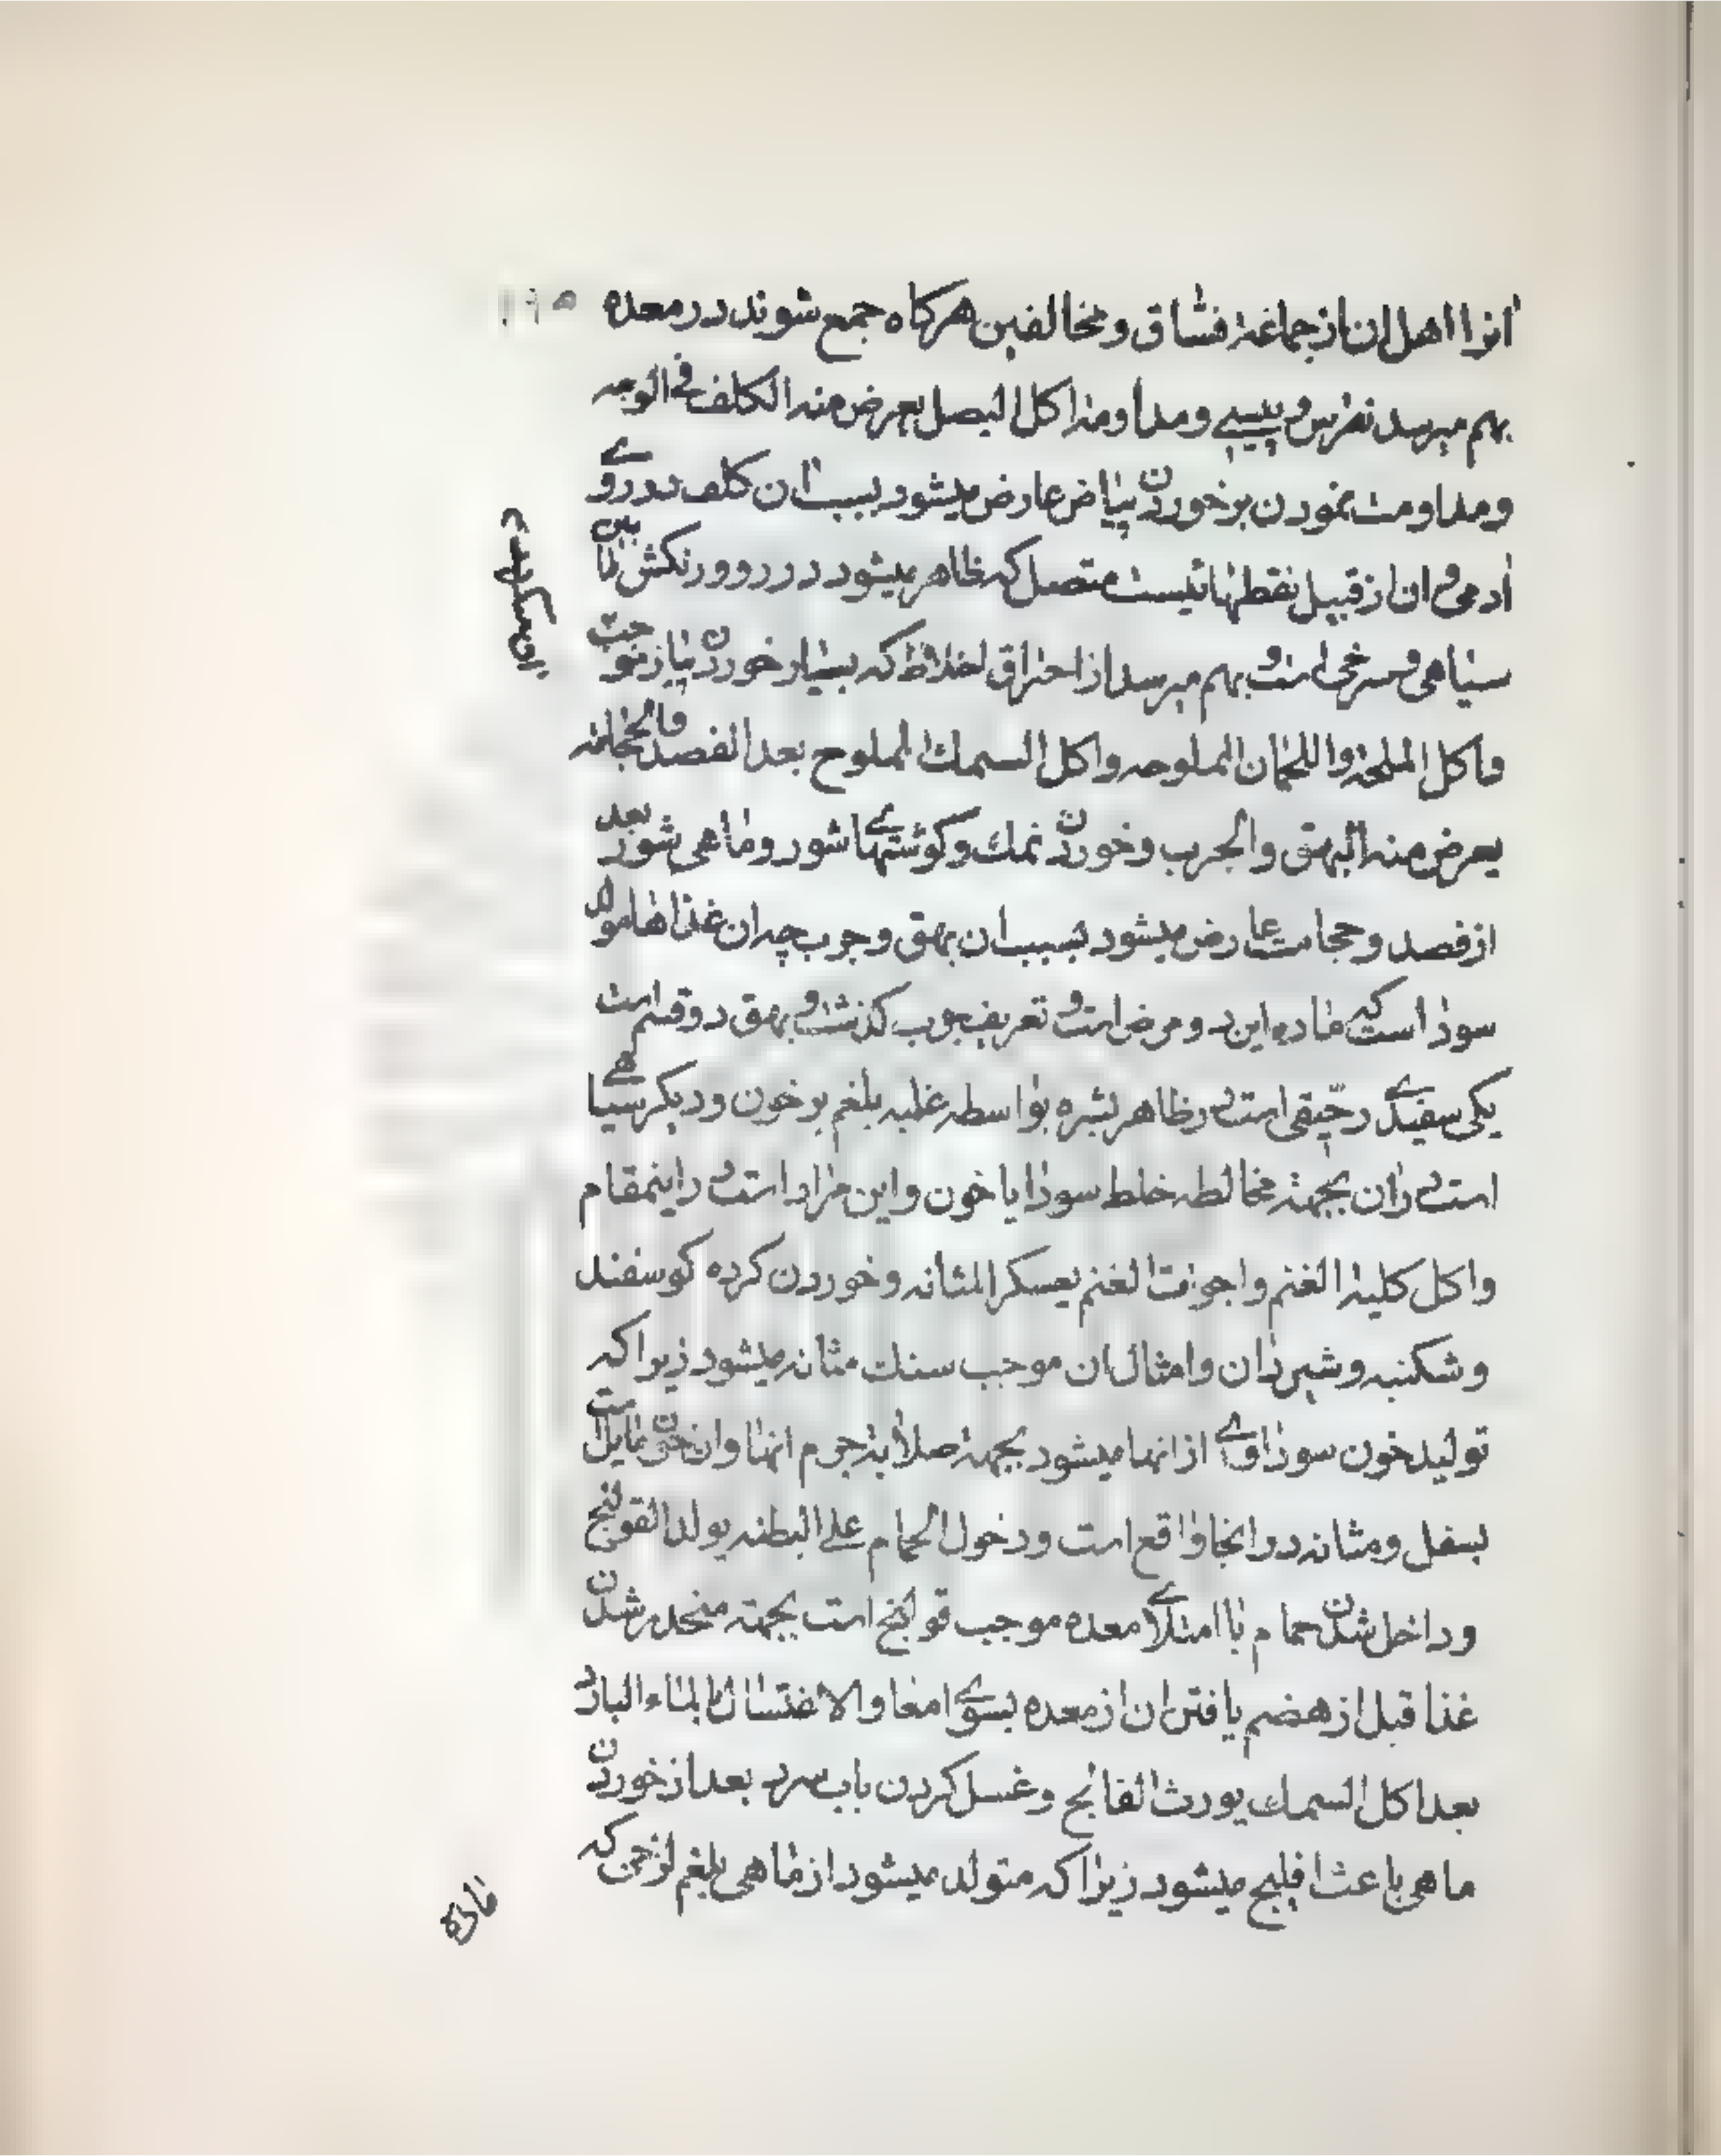 انرا اهل ان از جماعة فساق و مخالفین هرکاه جمع شوند در معده
بهم میرسد نقرس و پیسی و مداومة اکل البصل یعرض منه الکلف فی الوجه
و مداومت نمودن بر خوردن پیاض عارض میشود بسبب ان کلف در روی
ادمی و ان از قبیل نقطهائیست متصل که ظاهر میشود در رو و رنکش مابین
سیاهی و سرخی است و بهم میرسد از احتراق اخلاط که بسیار خوردن پیاز موجب
واکل الملحة واللحمان المملوحه واکل السمک المملوح بعد الفصد والحجامة
یعرض منه البهق والجرب و خوردن نمک و کوشتهای شور و ماهی شور بعد
از فصد و حجامت عارض میشود بسبب ان بهق و جرب چه ان غذاها مولد
سودا است که ماده این دو مرض است و تعریف جرب کذشت و بهق دو قسم است
یکی سفیدی رقیقی است در ظاهر بشره بواسطه غلبه بلغم بر خون و دیکر سیاهی
است در ان بجهة مخالطه خلط سودا با خون و این مراد است در اینمقام
واکل کلیة الغنم واجواف الغنم یعسکر المثانه و خوردن کرده کوسفند
و شکنبه و شیردان و امثال ان موجب سنک مثانه میشود زیرا که
تولید خون سوداوی از انها میشود بجهة صلابة جرم انها و ان خون مایل است
بسفل و مثانه در انجا واقع است ودخول الحمام علی البطنه یولد القولنج
و داخل شدن حمام با امتلای معده موجب قولنج است بجهة منحدر شدن
غذا قبل از هضم یافتن ان از معده بسوی امعا والاغتسال بالماء البارد
بعد اکل السمک یورث الفالج و غسل کردن باب سرد بعد از خوردن
ماهی باعث افلیج میشود زیرا که متولد میشود از ماهی بلغم لزجی که
ماده